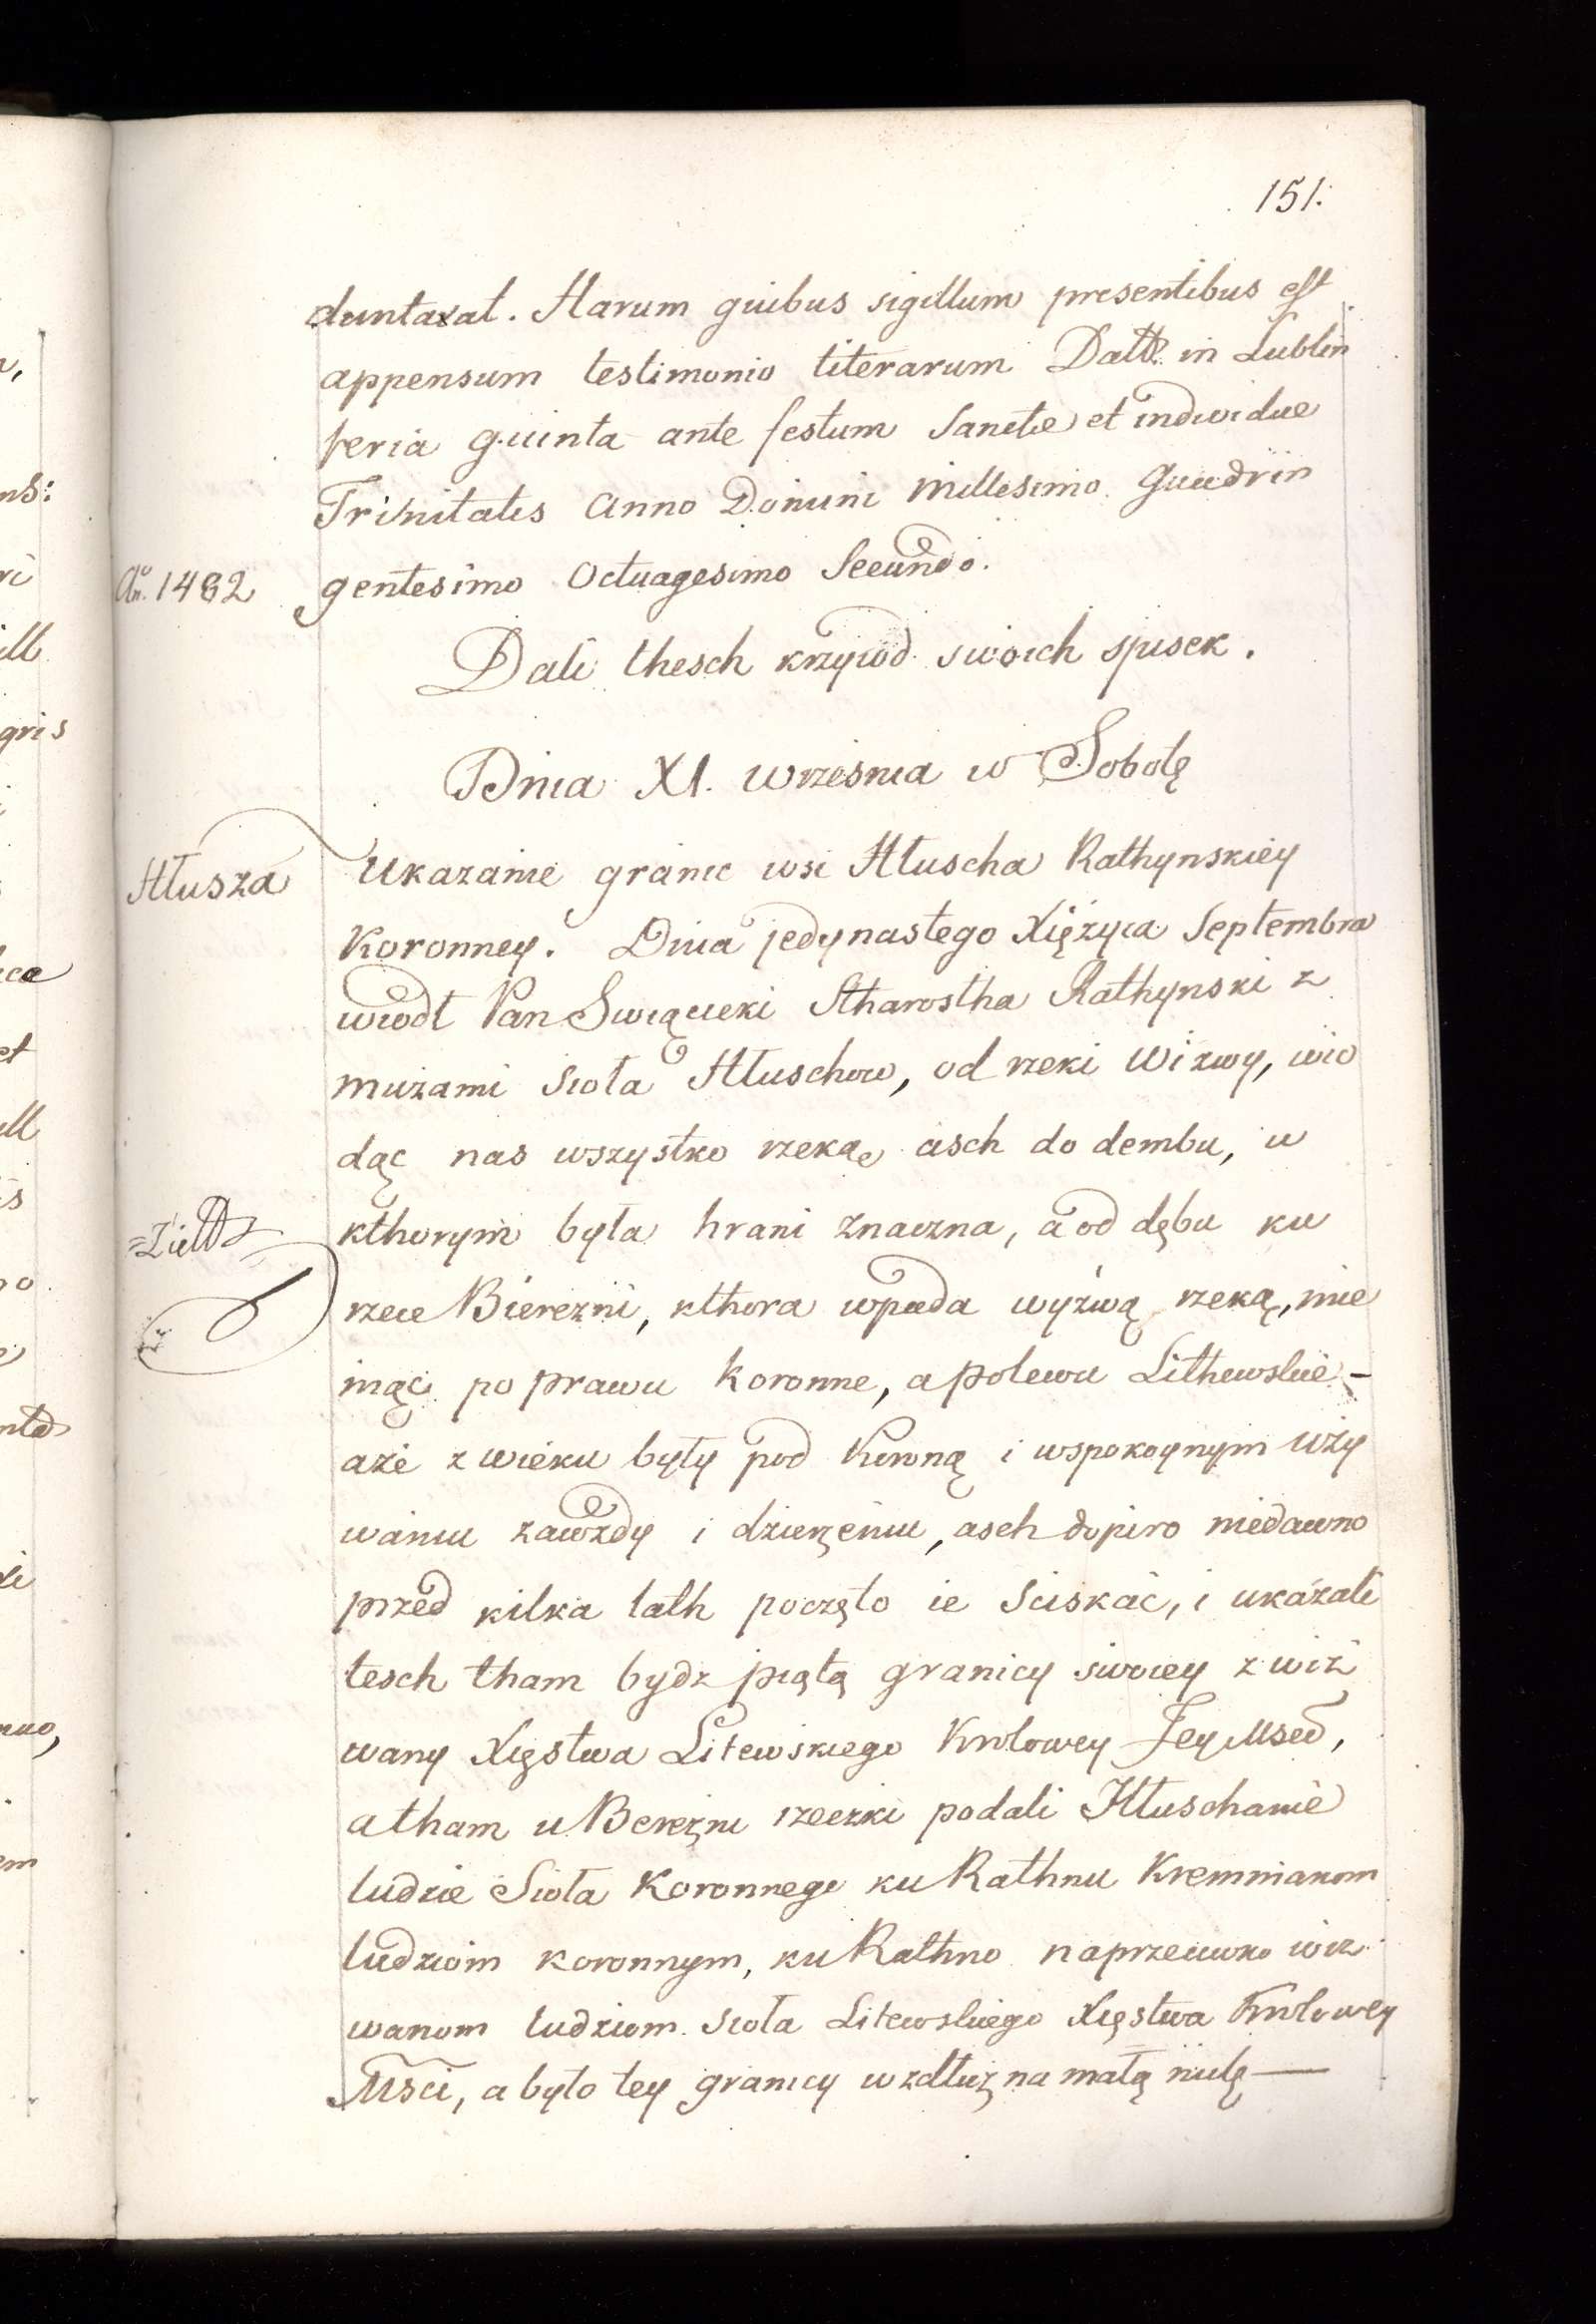 151.
duntaxat. Harum quibus sigillum presentibus est
appensum testimonio literarum Datt. in Lublin
feria quinta ante festum Sancte et individue
Trinitatis Anno Domini Millesimo Quadrin
Ao. 1482 gentesimo Octuagesimo Secundo.
Dali thesch krzywd swoich spisek.
Dnia XI. września w Sobotę
Hłusza Ukazanie granic wsi Hłuscha Rathynskiey
Koronney. Dnia jedynastego Xiężyca Septembra
wiodł Pan Swiącicki Stharostha Rathynski z
mużami sioła Hłuschow, od rzeki Wizwy, wio
dąc nas wszystko rzeką asch do dembu, w
kthorym była hrani znaczna, a od dębu ku
rzece Bierezni, kthora wpada wyzwą rzeką, mie
niąc po prawu Koronne, a polewu Lithewskie –
aże z wieku były pod Koroną i wspokoynym uży
waniu zawżdy i dzierżeniu, asch dopiro niedawno
przed kilka lath poczęto ie sciskać, i ukazali
tesch tham bydz piątą granicy swoiey z wiz
wany Xięstwa Litewskiego Krolowey Jey Msci,
a tham u Bereźni rzeczki podali Hłuschanie
ludzie Sioła Koronnego ku Rathnu Kremnianom
ludziom koronnym, ku Rathno naprzeciwko wiz
wanom ludziom sioła Litewskiego Xięstwa Krolowey
Msci, a było tey granicy wzdłuż na małą milę —